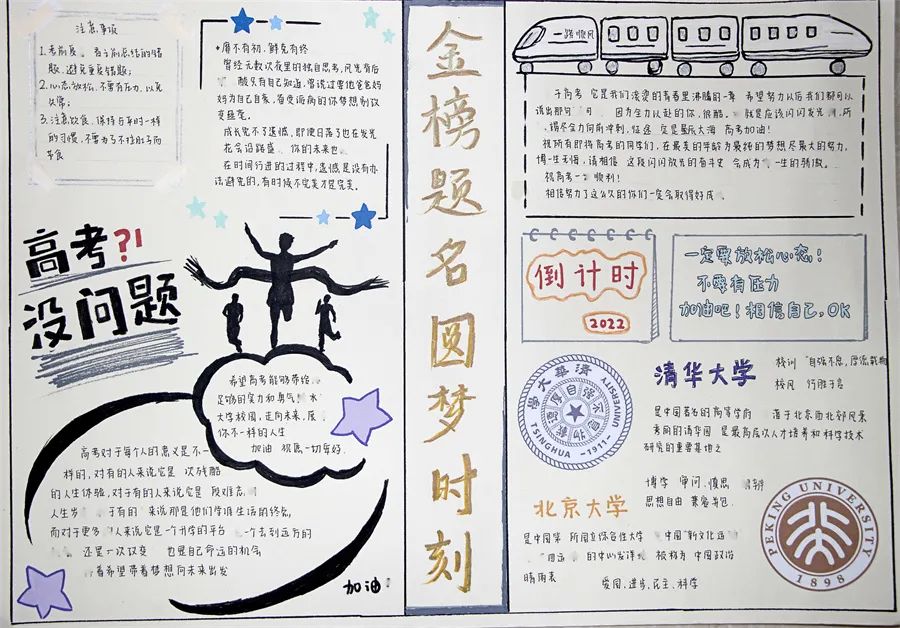 注意事项
1.考前复 考之前总结的错
题,避免重复错题;
2.心态放松,不要有压力,以免
失常;
3.注意饮食,保持与平时一样
的习惯,不要为了不拉肚子而
节食
靡不有初,鲜克有终
曾经无数次夜里的独自思考,风光背后
酸只有自己知道,曾说过要他爸爸妈
妈为自己自豪,备受诟病的你梦想别改
变颜色.
成长免不了遗憾,即便日落了也在发光
花会沿路盛 你的未来也
在时间行进的过程中,遗憾是没有办
法避免的,有时候不完美才是完美.
高考?!
没问题
希望高考能够带给
足够的实力和勇气! 水
大学校园,走向未来,展
你不一样的人生
加油 祝愿一切年好.
高考对于每个人的意义是不一
样的,对有的人来说它是 次残酷
的人生体验,对于有的人来说它是 段难忘
人生岁 于有的 来说那是他们学涯生活的终点,
而对于更多 人来说它是一个升学的平台 一个去到远方的
还是一次改变 也是自己命运的机会
着希望带着梦想向未来出发
加油
金榜题名圆梦时刻
一路顺风
于高考 它是我们滚烫的青春里沸腾的一章 希望努力以后我们都可以
说出那句 因为全力以赴的你,很酷. 就是应该闪闪发光 所
谓尽全力向前冲刺,征途 定是星辰大海 高考加油!
祝所有即将高考的同学们,在最美的年龄为最纯的梦想尽最大的努力,
博一生无悔,请相信 这段闪闪放光的奋斗史 会成为 一生的骄傲.
祝高考一 顺利!
相信努力了这么久的你们一定会取得好成
倒计时
2022
一定要放松心态!
不要有压力
加油吧!相信自己,OK
清华大学
校训 "自强不息,厚德载物
校风 行胜于言
是中国著名的高等学府 落于北京西北郊风景
秀丽的清华园 是最高层次人才培养和科学技术
研究的重要基地之
清华大学
自强不息
厚德载物
TSINGHUA UNIVERSITY
-1911-
北京大学
博学 审问 慎思 明辨
思想自由 兼容并包.
是中国第 所国立综合性大学 中国"新文化运
"四运 的中心发祥 被称为 中国政治
晴雨表 爱国、进步、民主、科学
PEKING UNIVERSITY
1898